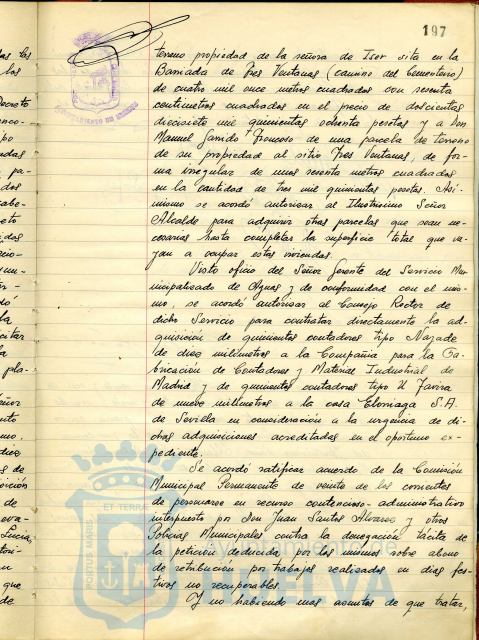 197
terreno propiedad de la señora de Iser sita en la
Barriada de Tres Ventanas (camino del Cementerio)
de cuatro mil once metros cuadrados con sesenta
centimetros cuadrados en el precio de doscientas
diecisiete mil quinientas ochenta pesetas y a Don
Manuel Garrido Troncoso de una parcela de terreno
de su propiedad al sitio Tres Ventanas, de for-
ma irregular de unos sesenta metros cuadrados
en la cantidad de tres mil quinientas pesetas. Asi-
mismo se acordó autorizar al Ilustrisimo Señor
Alcalde para adquirir otras parcelas que sean ne-
cesarias hasta completar la superficie total que va-
yan a ocupar estas viviendas.
Visto oficio del Señor Gerente del Servicio Mu-
nicipalizado de Aguas y de conformidad con el mis-
mo, se acordó autorizar al Consejo Rector de
dicho Servicio para contratar directamente la ad-
quisición de quinientos contadores tipo
de diez milímetros a la Compañia para la Fa-
bricación de Contadores y Material Industrial de
Madrid y de quinientos contadores tipo
de nueve milimetros a la casa Elorriaga S.A.
de Sevilla en consideración a la urgencia de di-
chas adquisiciones acreditadas en el oportuno ex-
pediente.
Se acordó ratificar acuerdo de la Comisión
Municipal Permanente de veinte de los corrientes
de personarse en recurso contencioso-administrativo
interpuesto por Don Juan Santos Alvarez y otros
Policias Municipales contra la denegación tácita de
la petición deducida por los mismos sobre abono
de retribución por trabajos realizados en dias fes-
tivos no recuperables.
Y no habiendo mas asuntos de que tratar,
PORTUS MARIS
ET TERRAE
Ayuntamiento de
HUELVA